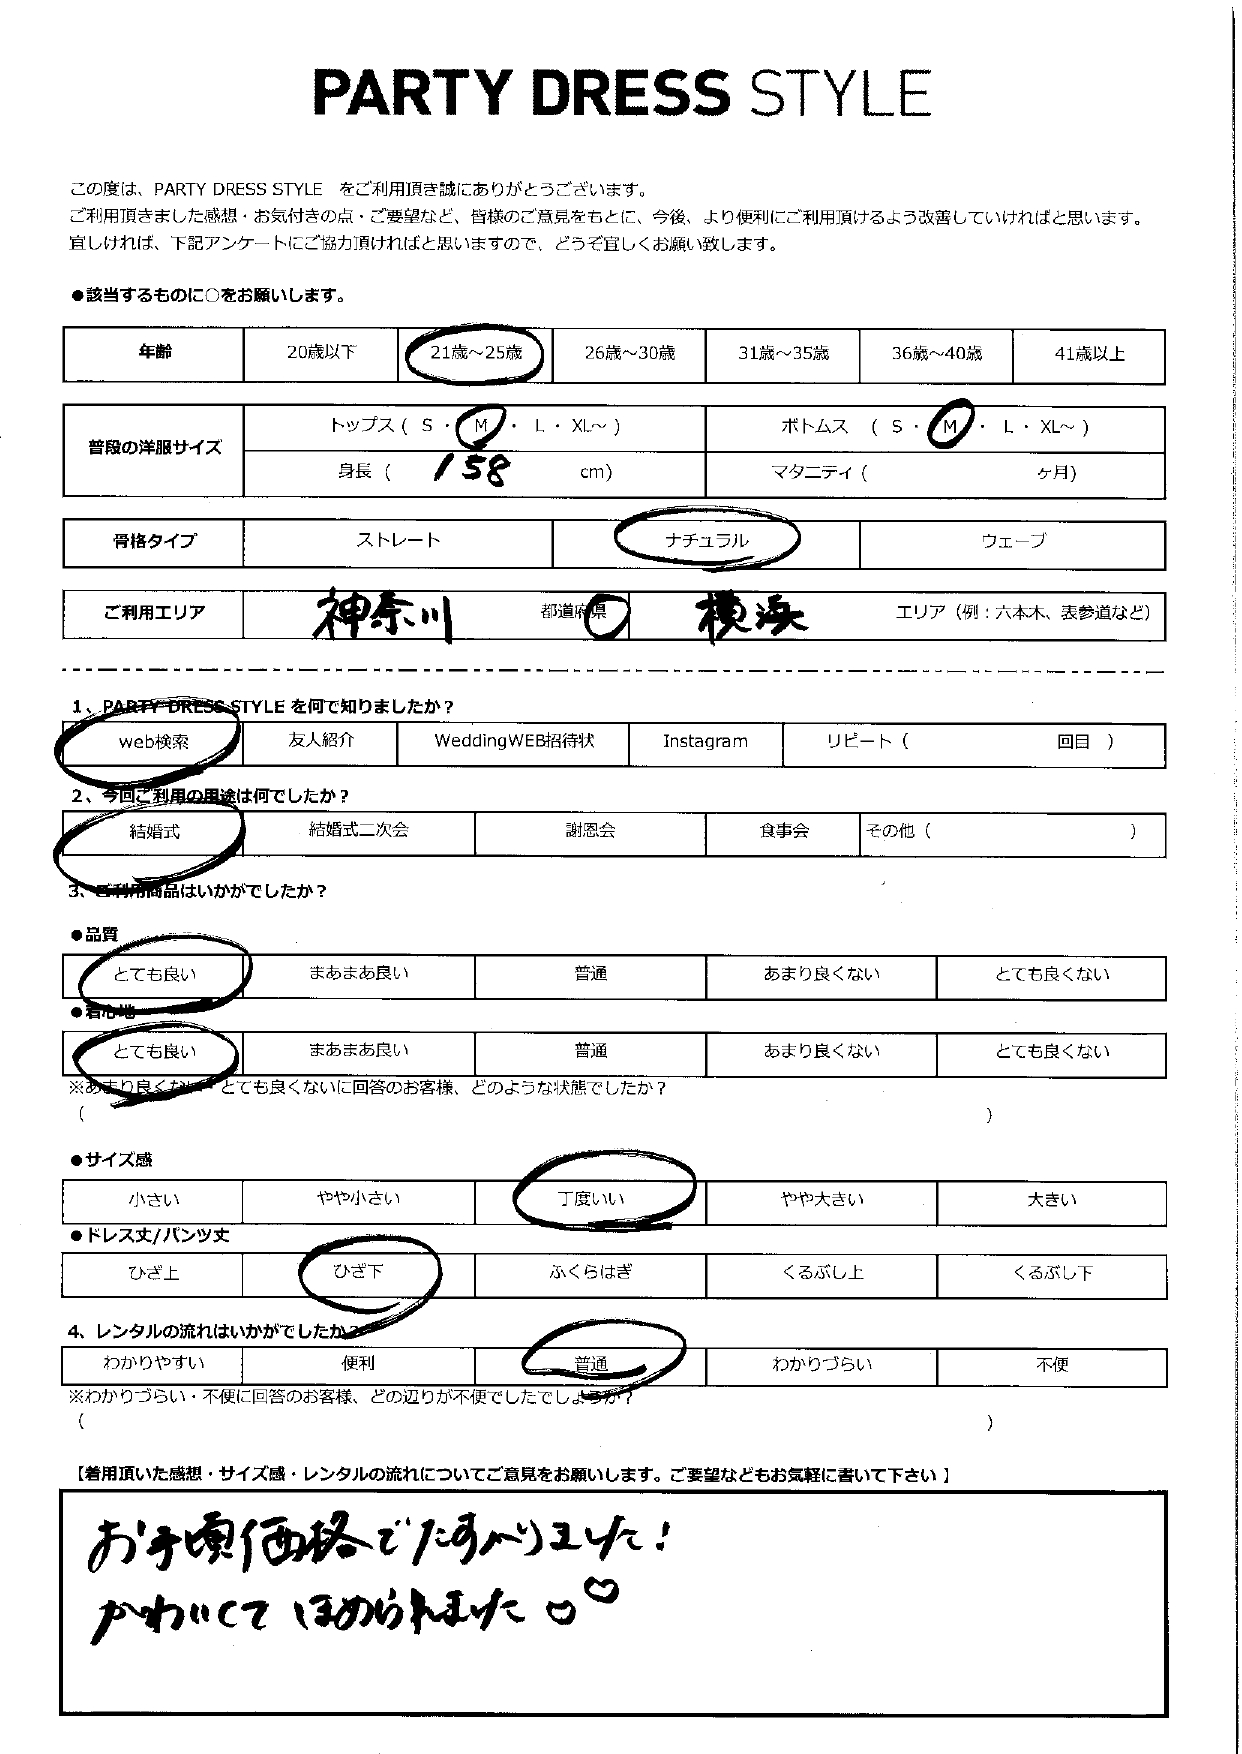 PARTY DRESS STYLE
この度は、PARTY DRESS STYLE をご利用頂き誠にありがとうございます。
ご利用頂きました感想・お気付きの点・ご要望など、皆様のご意見をもとに、今後、より便利にご利用頂けるよう改善していければと思います。
宜しければ、下記アンケートにご協力頂ければと思いますので、どうぞ宜しくお願い致します。
●該当するものに○をお願いします。
年齢 20歳以下 21歳～25歳 26歳～30歳 31歳～35歳 36歳～40歳 41歳以上
普段の洋服サイズ トップス ( S ・ M ・ L ・ XL～ ) ボトムス ( S ・ M ・ L ・ XL～ )
身長 ( 158 cm) マタニティ ( ヶ月)
骨格タイプ ストレート ナチュラル ウェーブ
ご利用エリア 神奈川 都道府県 横浜 エリア（例：六本木、表参道など）
1、PARTY DRESS STYLE を何で知りましたか？
web検索 友人紹介 WeddingWEB招待状 Instagram リピート ( 回目 )
2、今回ご利用の用途は何でしたか？
結婚式 結婚式二次会 謝恩会 食事会 その他 ( )
3、ご利用商品はいかがでしたか？
●品質
とても良い まあまあ良い 普通 あまり良くない とても良くない
●着心地
とても良い まあまあ良い 普通 あまり良くない とても良くない
※あまり良くない・とても良くないに回答のお客様、どのような状態でしたか？
( )
●サイズ感
小さい やや小さい 丁度いい やや大きい 大きい
●ドレス丈/パンツ丈
ひざ上 ひざ下 ふくらはぎ くるぶし上 くるぶし下
4、レンタルの流れはいかがでしたか？
わかりやすい 便利 普通 わかりづらい 不便
※わかりづらい・不便に回答のお客様、どの辺りが不便でしたでしょうか？
( )
【着用頂いた感想・サイズ感・レンタルの流れについてご意見をお願いします。ご要望などもお気軽に書いて下さい】
お手頃価格でたすかりました！
かわいくて ほめられました♡♡